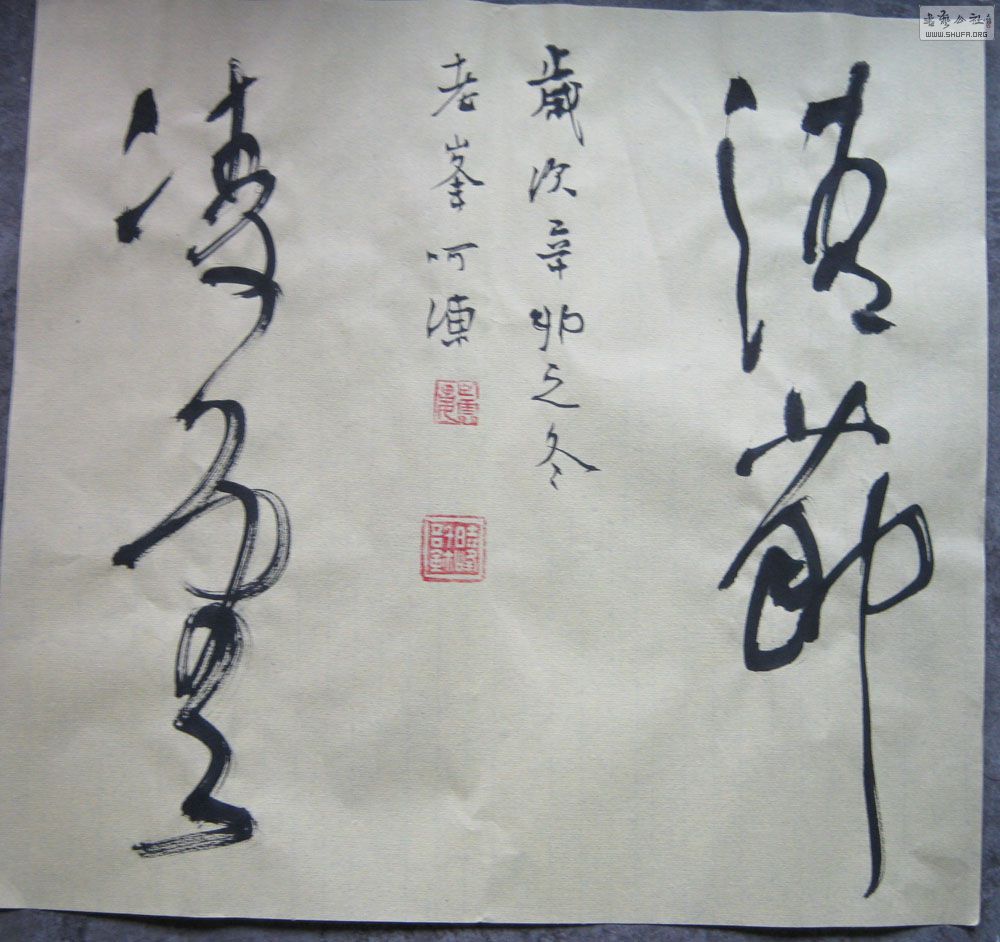 清節
歲次辛卯之冬
老峯呵凍
凌雲
書藝公社
WWW.SHUFA.ORG